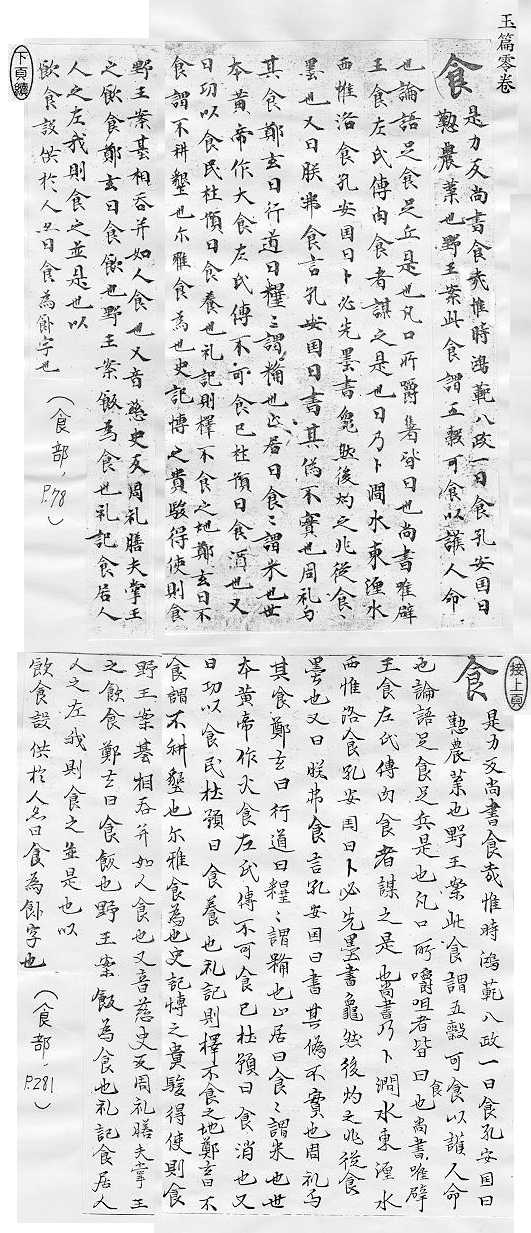 玉篇零卷
食
是力反尚書食哉惟時鴻範八政一曰食孔安国曰
懃農業也野王案此食謂五穀可食以護人命
也論語足食足丘是也凡口所嚼著皆曰也尚書唯辟
王食左氏傳肉食者謀之是也曰乃卜澗水東湹水
西惟洛食孔安国曰卜必先墨書龜然後灼之兆從食〻
墨也又曰朕弗食言孔安国曰書其偽不實也周礼与
其食鄭玄曰行道曰糧〻謂糒也止居曰食〻謂米也世
本黄帝作大食左氏傳不可食已杜預曰食消也又
曰功以食民杜預曰食養也礼記則擇不食之地鄭玄曰不
食謂不耕墾也尓雅食為也史記博之貴駿得使則食
野王案碁相吞并如人食也又音慈史反周礼膳夫掌王
之飲食鄭玄曰食飲也野王案飯為食也礼記食居人
人之左我則食之並是也以
飲食設供於人亦曰食為飤字也
(食部,P.78)
下頁續
接上頁
食
是力反尚書食哉惟時鴻範八政一曰食孔安国曰
懃農業也野王案此食謂五穀可食以護人命
也論語足食足兵是也凡口所嚼咀者皆曰食也尚書唯辟
王食左氏傳肉食者謀之是也尚書乃卜澗水東湹水
西惟洛食孔安国曰卜必先墨書龜然後灼之兆從食
墨也又曰朕弗食言孔安国曰書其偽不實也周礼与
其食鄭玄曰行道曰糧〻謂糒也止居曰食〻謂米也世
本黄帝作火食左氏傳不可食已杜預曰食消也又
曰功以食民杜預曰食養也礼記則擇不食之地鄭玄曰不
食謂不耕墾也尓雅食為也史記博之貴駿得使則食
野王案碁相吞并如人食也又音慈史反周礼膳夫掌王
之飲食鄭玄曰食飯也野王案飯為食也礼記食居人
人之左我則食之並是也以
飲食設供於人亦曰食為飤字也
(食部,P.281)